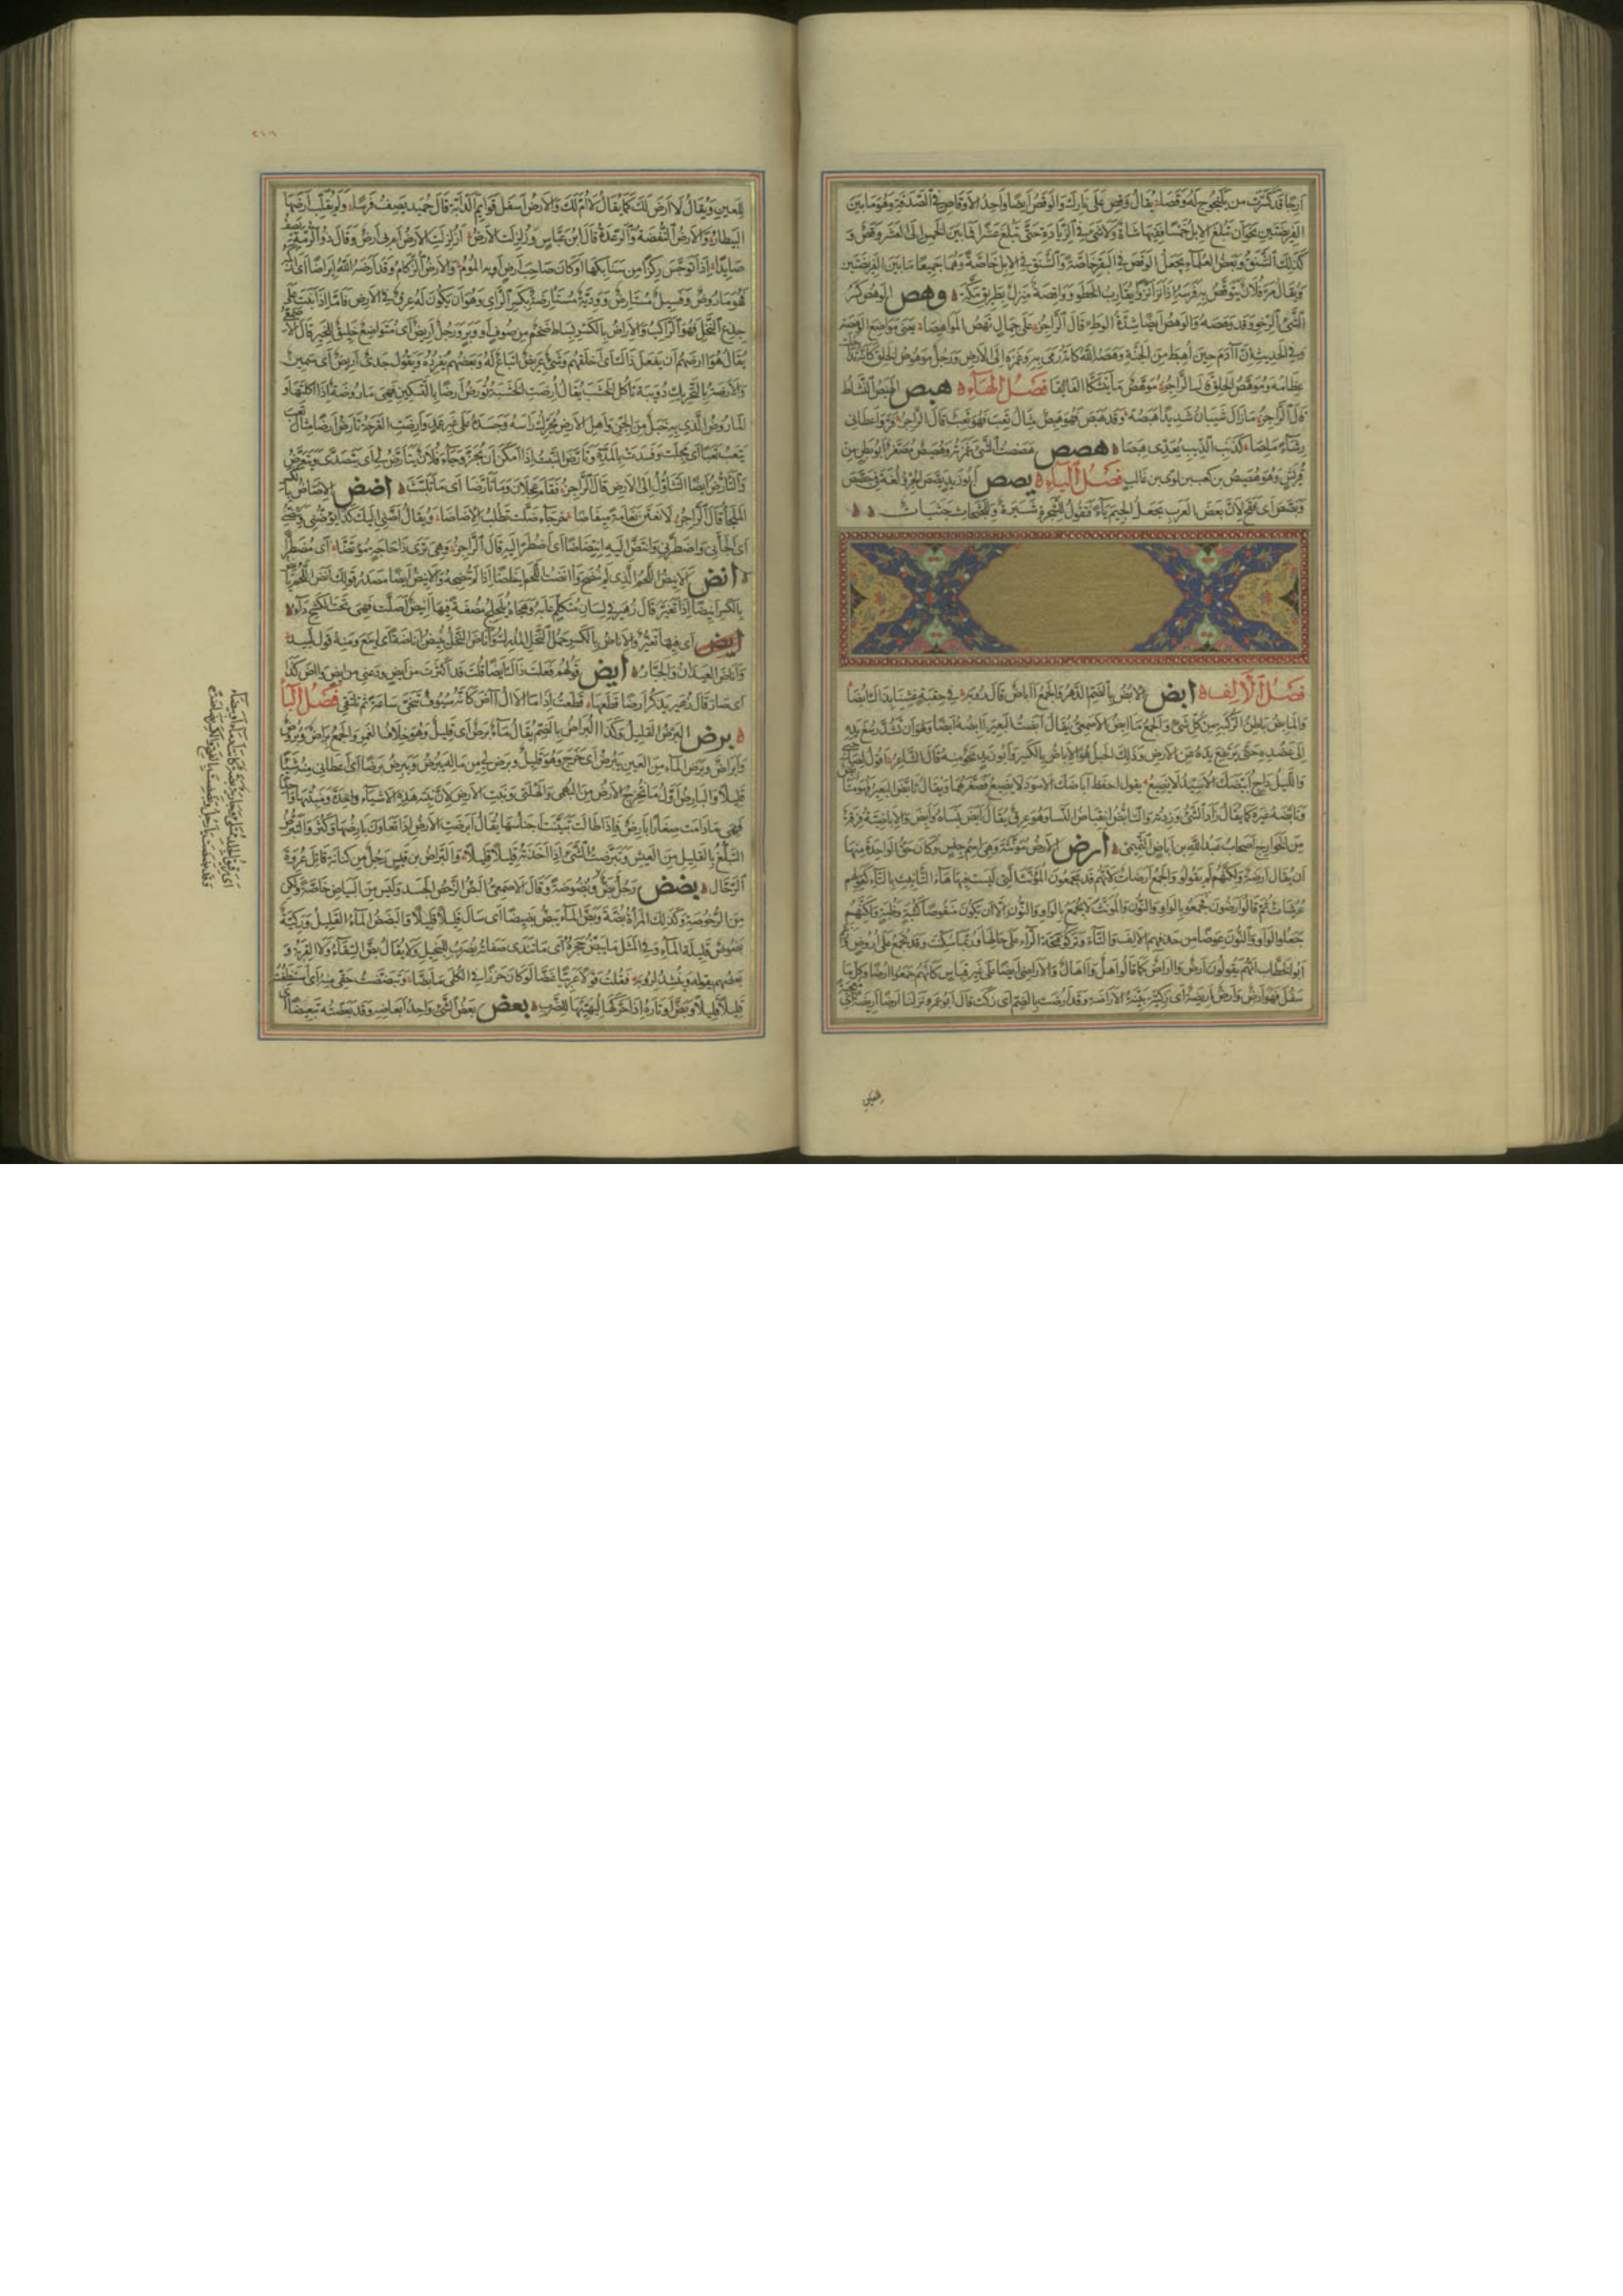 ارجا قد كسرت من يلنجوج له وقصا يقال وقص على نارك والوقص ايضا واحد الاوقاص في الصدقة وهو ما بين
الفريضتين نحو ان تبلغ الابل خمسا ففيها شاة ولا شئ في الزيادة حتى تبلغ عشرا فما بين الخمس الى العشر وقص و
كذلك الشنق وبعض العلماء يجعل الوقص في البقر خاصة والشنق في الابل خاصة وهما جميعا ما بين الفريضتين
ويقال مر فلان يتوقص به فرسه اذا نزا نزوا يقارب الخطو وواقصة منزل بطريق مكة وهص الوهص كسر
الشئ الرخو وقد وهصه والوهص ايضا شدة الوطء قال الراجز على جمال تهص المواهصا يعنى مواضع الوهصة
وفي الحديث ان آدم حين اهبط من الجنة وهصه الله كانه رمى به وغمزه الى الارض ورجل موهوص الخلق كانه تداخلت
عظامه وموهص الخلق قال الراجز موهص ما يتشكا الفائقا فصل الهاء هبص الهبص النشاط
قال الراجز ما زال شيبان شديدا هبصه وقد هبص فهو هبص مثال تعب فهو تعب قال الراجز فر واعطانى
رشاء ملصا كذنب الذيب يعدى هبصا هصص هصصت الشئ غمزته وهصيص مصغر ابو بطن من
قريش وهو هصيص بن كعب بن لوى بن غالب فصل الياء يصص ابو زيد يصص الجرو لغة في جصص
وبصص اى فقح لان بعض العرب يجعل الجيم ياء فتقول للشجرة شيرة وللجثجاث جثياث
فصل الالف ابض الابض بالضم الدهر والجمع آباض قال رؤبة في حقبة عشنا بذاك ابضا
والمابض باطن الركبة من كل شئ والجمع مآبض الاصمعى يقال ابضت البعير آبضه ابضا وهو ان تشد رسغ يده
الى عضده حتى ترتفع يده عن الارض وذلك الحبل هو الاباض بالكسر وابو زيد نحو منه قال الشاعر اقول لصاحبى
والليل داج ابيضك الاسيد لا يضيع يقول احفظ اباضك الاسود لا يضيع فصغرهما ويقال تابض البعير فهو متابض
وتابضه غيره كما يقال زاد الشئ وزدته والتابض انقباض النسا وهو عرق يقال ابض نساه وابض والاباضية فرقة
من الخوارج اصحاب عبد الله بن اباض التميمى ارض الارض مؤنثة وهى اسم جنس وكان حق الواحدة منها
ان يقال ارضة ولكنهم لم يقولوا والجمع ارضات لانهم قد يجمعون المؤنث الذى ليست فيها هاء التانيث بالتاء كقولهم
عرسات ثم قالوا ارضون فجمعوا بالواو والنون والمؤنث لا يجمع بالواو والنون الا ان يكون منقوصا كثبة وظبة ولكنهم
جعلوا الواو والنون عوضا من حذفهم الالف والتاء وتركوا فتحة الراء على حالها وربما سكنت وقد تجمع على اروض وزعم
ابو الخطاب انهم يقولون ارض وآراض كما قالوا اهل وآهال والاراضى ايضا على غير قياس كانهم جمعوا آرضا وكل ما
سفل فهو ارض وارض اريضة اى زكية بينة الاراضة وقد ارضت بالضم اى زكت قال ابو عمرو نزلنا ارضا اريضة اى معجبة
للعين
٢١٦
للعين ويقال لا ارض لك كما يقال لا ام لك والارض اسفل قوائم الدابة قال حميد يصف فرسا ولم يقلب ارضها
البيطار والارض النفضة والرعدة قال ابن عباس وزلزلت الارض ازلزلت الارض ام بى ارض وقال ذو الرمة يصف
صايدا اذا توجس ركزا من سنابكها او كان صاحب ارض او به الموم والارض الزكام وقد آرضه الله ايراضا اى ازكمه
فهو ماروض وفسيل مستارض وودية مستارضة بكسر الراى وهو ان يكون له عرق في الارض فاما اذا نبت على
جذع النخل فهو الراكب والاراض بالكسر بساط ضخم من صوف او وبر ورجل اريض اى متواضع خليق للخير قال الاصمعى
يقال هو آرضهم ان يفعل ذاك اى اخلقهم وشئ عريض اريض اتباع له وبعضهم يفرده ويقول جدى اريض اى سمين
والارضة بالتحريك دويبة تاكل الخشب يقال ارضت الخشبة تؤرض ارضا بالتسكين فهى ماروضة اذا اكلتها و
الماروض الذى به خبل من الجن واهل الارض يحرك راسه وجسده على غير عمد وارضت القرحة تارض ارضا مثال تعب
يتعب تعبا اى مجلت وفسدت بالمدة وتارض النبت اذا امكن ان يجز وجاء فلان يتارض لى اى يتصدى ويتعرض
والتارض ايضا التثاقل الى الارض قال الراجز فقام عجلان وما تارضا اى ما تلبث اضض الاضاض بالكسر
الملجأ قال الراجز لانعتن نعامة ميفاضا خرجاء ظلت تطلب الاضاضا ويقال اضنى اليك كذا يؤضنى ويئضنى
اى الجأنى واضطرنى وائتض اليه ائتضاضا اى اضطر اليه قال الراجز وهى ترى ذا حاجة مؤتضا اى مضطرا
انض الانيض اللحم الذى لم ينضج وآنضت اللحم ايناضا اذا لم تنضجه والانيض ايضا مصدر قولك انض اللحم يانض
بالكسر انيضا اذا تغير قال زهير في لسان متكلم عابه وهجاه يلجلج مضغة فيها انيض اصلت فهى تحت الكشح داء
اى فيها تغير والاناض بالكسر حمل النخل المدرك واناض النخل ينيض اناضة اى اينع ومنه قول لبيد
واناض العيدان والجبار ايض قولهم فعلت ذاك ايضا قلت قد اكثرت من ايض ودعنى من ايض وآض كذا
اى صار قال زهير يذكر ارضا قطعها قطعت اذا ما الآل آض كانه سيوف تنحى ساعة ثم تلتقى فصل الباء
برض البرض القليل وكذا البراض بالضم يقال ماء برض اى قليل وهو خلاف الغمر والجمع براض وبروض
وابراض وبرض الماء من العين يبرض اى خرج وهو قليل وبرض لى من ماله يبرض ويبرض برضا اى اعطانى منه شيئا
قليلا والبارض اول ما تخرج الارض من البهمى والهلتى ونبت الارض لان نبتة هذه الاشياء واحدة ومنبتها واحد
فهى ما دامت صغارا بارض فاذا طالت تبينت اجناسها يقال ابرضت الارض اذا تعاون بارضها وكثر والتبرض
التبلغ بالقليل من العيش وتبرضت الشئ اذا اخذته قليلا قليلا والبراض بن قيس رجل من كنانة قاتل عروة
الرحال بضض رجل بض وبضوضة وقال الاصمعى البض الرخص الجسد وليس من البياض خاصة ولكن
من الرخوصة وكذلك المراة بضة وبض الماء يبض بضيضا اى سال قليلا قليلا والبضض الماء القليل وركية
بضوض قليلة الماء وفي المثل ما يبض حجره اى ما تندى صفاته يضرب للبخيل ولا يقال بض السقاء ولا القربة و
بعضهم يقوله وينشد لرؤبة فقلت قولا عربيا غضا لو كان خرزا في الكلى ما بضا وتبضضت حقى منه اى استنظفت
قليلا قليلا وبض اوتاره اذا حركها ليهيئها للضرب بعض بعض الشئ واحد ابعاضه وقد بعضته تبعيضا اى